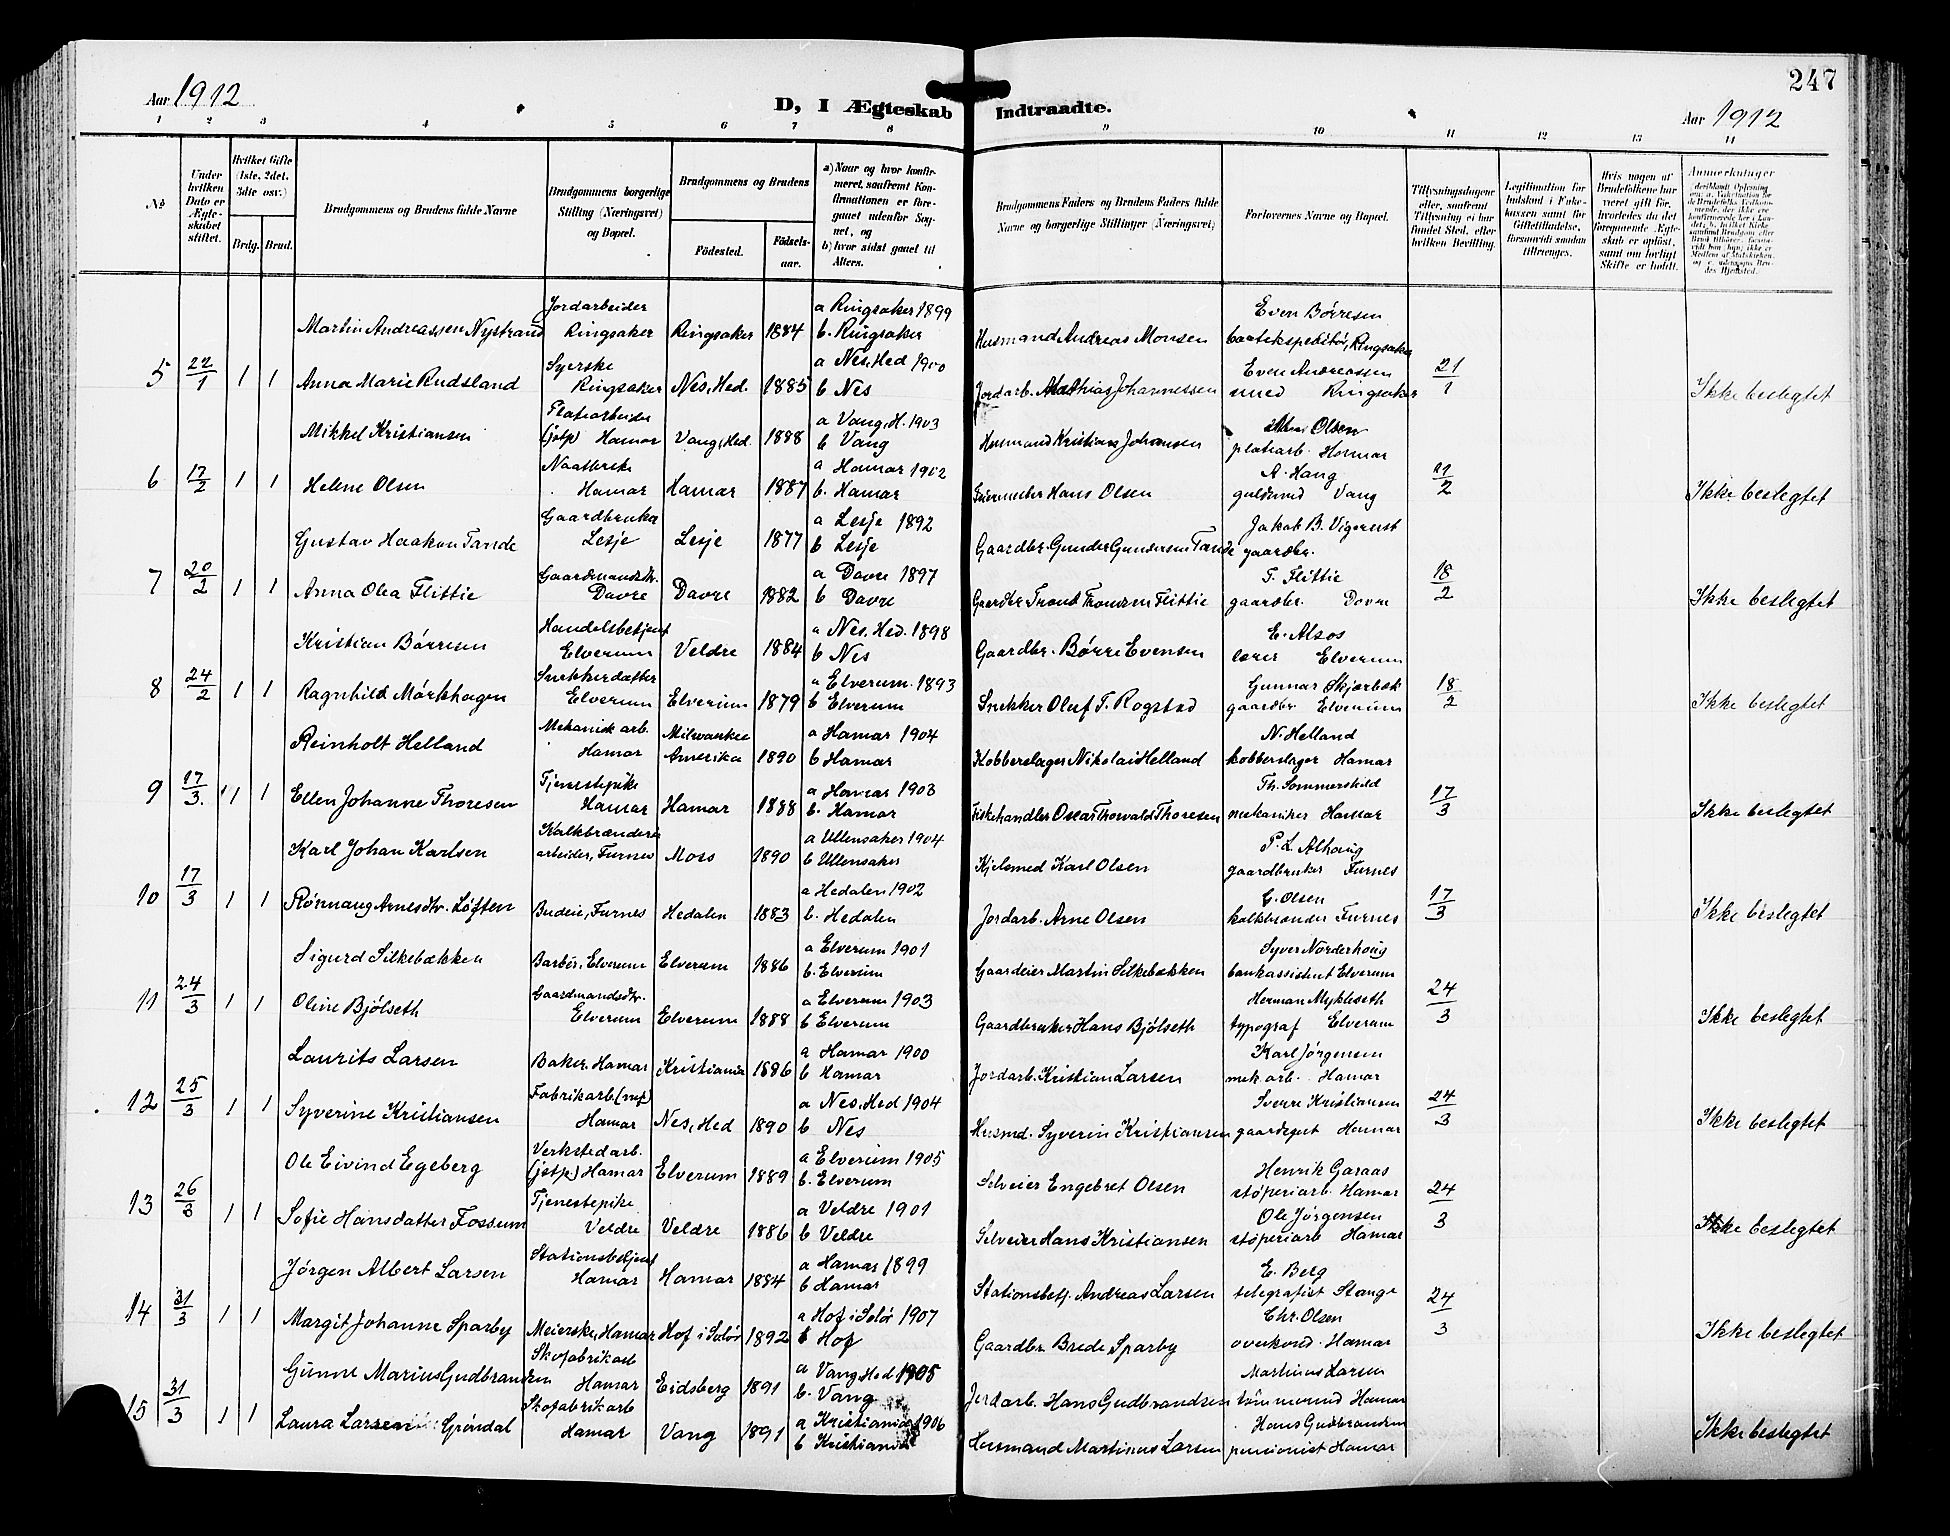 247
Aar 1912
D, I Ægteskab Indtraadte.
Aar 1912
1 2 3 4 5 6 7 8 9 10 11 12 13 14
No
Under hvilken Dato er Ægteskabet stiftet.
Hvilket Gifte (1ste, 2det, 3die osv.)
Brdg. Brud.
Brudgommens og Brudens fulde Navne
Brudgommens borgerlige Stilling (Næringsvei) og Bopæl.
Brudgommens og Brudens
Födested.
Födselsaar.
a) Naar og hvor konfirmeret, saafremt Konfirmationen er foregaaet udenfor Sognet, og
b) hvor sidst gaaet til Alters.
Brudgommens Faders og Brudens Faders fulde Navne og borgerlige Stillinger (Næringsvei)
Forlovernes Navne og Bopæl.
Tillysningsdagene eller, saafremt Tillysning ei har fundet Sted, efter hvilken Bevilling.
Legitimation for Indskud i Enkekassen samt for Giftetilladelse, forsaavidt saadan tiltrænges.
Hvis nogen af Brudefolkene har været gift før, hvorledes da det foregaaende Ægteskab er oplöst, samt om lovligt Skifte er holdt.
Anmerkninger
Martin Andreassen Nystrand Jordarbeider Ringsaker Ringsaker 1884 a Ringsaker 1899 b. Ringsaker Husmand Andreas Monsen Even Børresen baatekspeditør, Ringsaker
5 22/1 1 1 Anna Marie Rudsland Syerske Ringsaker Nes, Hed. 1885 a Nes, Hed 1900 b Nes Jordarb. Mathias Johannessen Even Andreassen smed Ringsaker 21/1 Ikke beslegtet
Mikkel Kristiansen Platearbeider (jstp) Hamar Vang, Hed. 1888 a Vang, H. 1903 b Vang Husmand Kristian Johansen Olsen platearb. Hamar
6 17/2 1 1 Helene Olsen Hamar Hamar 1887 a Hamar 1902 b. Hamar Hans Olsen A. Haug guldsmed Vang 2 Ikke beslegtet
Gustav Haakon Tande Gaardbruker Lesje Lesje 1877 a Lesje 1892 b Lesje Gaardbr. Gunder Gundersen Tande Jakob B. Vigerust gaardbr.
7 20/2 1 1 Anna Olea Flittie Gaardmandsdtr. Dovre Dovre 1882 a Dovre 1897 b Dovre Gaardbr Trond Trondsen Flittie T. Flittie gaardbr. Dovre 18/2 Ikke beslegtet
Kristian Børresen Handelsbetjent Elverum Veldre 1884 a Nes, Hed. 1898 b Nes Gaardbr. Børre Evensen E. Alsos lærer Elverum
8 24/2 1 1 Ragnhild Mørkhagen Snekkerdatter Elverum Elverum 1879 a Elverum 1893 b Elverum Snekker Oluf T. Rogstad Gunnar Skjærbæk gaardbr Elverum 18/2 Ikke beslegtet
Reinholt Helland Mekanisk arb. Hamar Milwaukee Amerika 1890 a Hamar 1904 b Hamar Kobberslager Nikolai Helland N. Helland kobberslager Hamar
9 17/3. 1 1 Ellen Johanne Thoresen Tjenestepike Hamar Hamar 1888 a Hamar 1903 b. Hamar Fiskehandler Oscar Thorwald Thoresen Th. Sommershild mekaniker Hamar 17/3 Ikke beslegtet
Karl Johan Karlsen Kalkbrænderarbeider, Furnes Moss 1890 a Ullensaker 1904 b Ullensaker Kjelsmed Karl Olsen P. L. Alhaug gaardbruker Furnes
10 17/3 1 1 Rønnaug Arnesdtr. Løften Budeie, Furnes Hedalen 1883 a Hedalen 1902 b. Hedalen Jordarb. Arne Olsen G. Olsen kalkbrænder Furnes 17/3 Ikke beslegtet
Sigurd Silkebækken Barbér, Elverum Elverum 1886 a Elverum 1901 b. Elverum Gaardeier Martin Silkebækken Syver Norderhaug bankassistent Elverum
11 24/3 1 1 Oline Bjølseth Gaardmandsdtr. Elverum Elverum 1888 a Elverum 1903 b Elverum Gaardbruker Hans Bjølseth Herman Mykleseth typograf Elverum 24/3 Ikke beslegtet
Laurits Larsen Baker, Hamar Kristiania 1886 a Hamar 1900 b Hamar Jordarb. Kristian Larsen Karl Jørgensen mek. arb. Hamar
12 25/3 1 1 Syverine Kristiansen Fabrikarb Hamar Nes, Hed 1890 a Nes, Hed 1904 b Nes Husmd. Syverin Kristiansen Sverre Kristiansen gaardsgut Hamar 24/3 Ikke beslegtet
Ole Eivind Egeberg Verkstedarb. (jstp) Hamar Elverum 1889 a Elverum 1905 b. Elverum Selveier Engebret Olsen Henrik Garaas støperiarb. Hamar
13 26/3 1 1 Sofie Hansdatter Fossum Tjenestepike Veldre Veldre 1886 a Veldre 1901 b Veldre Selveier Hans Kristiansen Ole Jørgensen støperiarb Hamar 24/3 Ikke beslegtet
Jørgen Albert Larsen Stationsbetjent Hamar Hamar 1884 a Hamar 1899 b Hamar Stationsbetj. Andreas Larsen E. Berg telegrafist Stange
14 31/3 1 1 Margit Johanne Sparby Meierske, Hamar Hof i Solør 1892 a Hof i Solør 1907 b Hof Gaardbr Brede Sparby Chr. Olsen overkond. Hamar 24/3 Ikke beslegtet
Gunne Marius Gudbrandsen Skofabrikarb Hamar Eidsberg 1891 a Vang Hed 1905 b. Vang Jordarb. Hans Gudbrandsen Martinus Larsen tømmermd Hamar
15 31/3 1 1 Laura Larsen Grøndal Skofabrikarb Hamar Vang 1891 a Kristiania 1906 b Kristiania Husmand Martinus Larsen Hans Gudbrandsen pensionist Hamar Ikke beslegtet